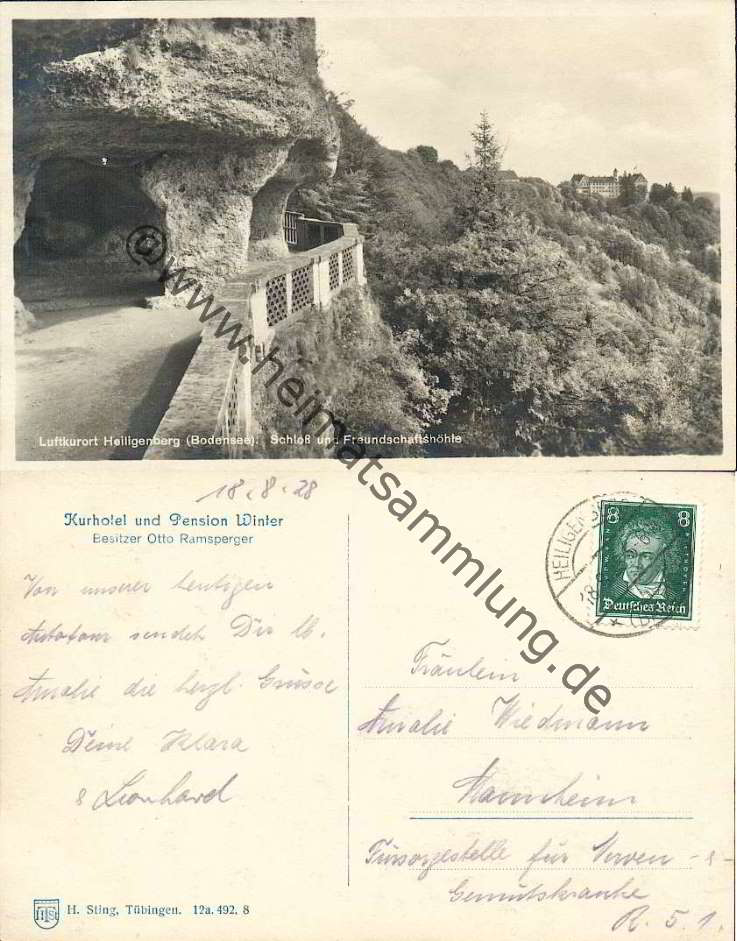 Luftkurort Heiligenberg (Bodensee). Schloß und Freundschaftshöhle
© www.heimatsammlung.de
18.8.28
Kurhotel und Pension Winter
Besitzer Otto Ramsperger
Von unserer heutigen
Autotour sendet Dir lb.
Amalie die herzl. Grüsse
Deine Klara
& Leonhard
HEILIGENBERG
8 8
Deutsches Reich
Fräulein
Amalie Wiedmann
Mannheim
Fürsorgestelle für Nerven - &
Gemütskranke
R. 5. 1.
H. Sting, Tübingen. 12a. 492. 8